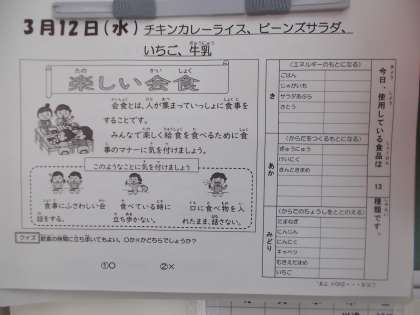 3月12日(水) チキンカレーライス、ビーンズサラダ、
いちご、牛乳
楽しい会食
会食とは、人が集まっていっしょに食事を
することです。
みんなで楽しく給食を食べるために食
事のマナーに気を付けましょう。
このようなことに気を付けましょう
食事にふさわしい会
話をする。
食べている時に
立ち歩かない。
口に食べ物を入
れたまま、話さない。
クイズ
給食の時間に立ち歩いてもよい。○か×かどちらでしょうか？
①○ ②×
今日、使用している食品は 13 種類です。
き
(エネルギーのもとになる)
ごはん
じゃがいも
サラダあぶら
さとう
あか
(からだをつくるもとになる)
ぎゅうにゅう
けいにく
みどり
(からだのちょうしをととのえる)
たまねぎ
にんじん
にんにく
キャベツ
むきえだまめ
いちご